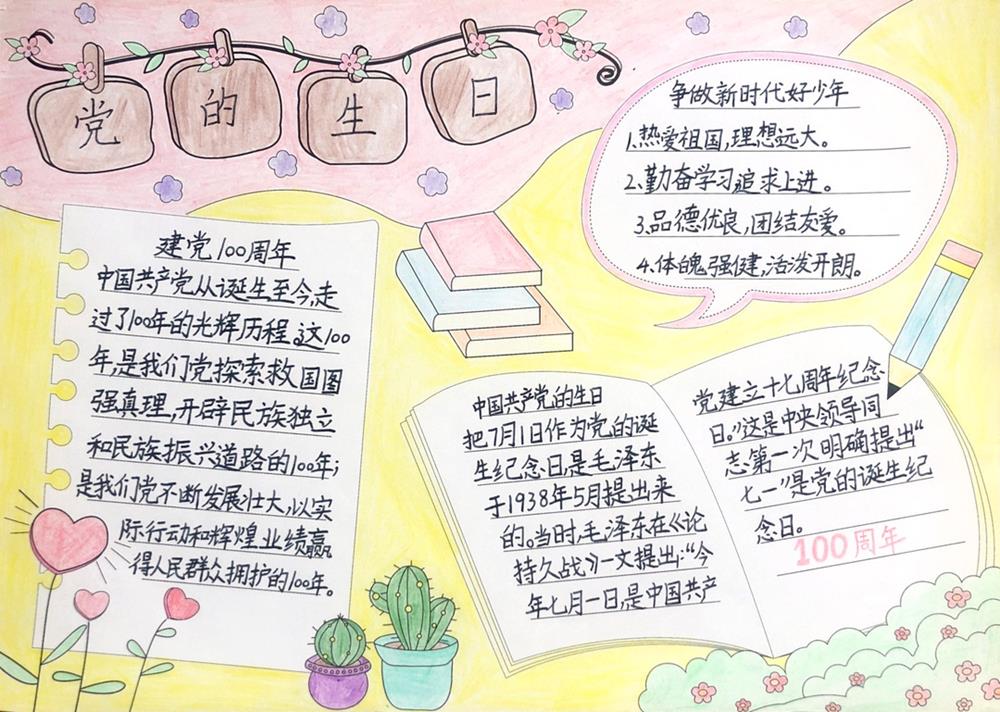 党的生日
建党100周年
中国共产党从诞生至今,走
过了100年的光辉历程。这100
年,是我们党探索救国图
强真理,开辟民族独立
和民族振兴道路的100年;
是我们党不断发展壮大,以实
际行动和辉煌业绩赢
得人民群众拥护的100年。
争做新时代好少年
1.热爱祖国,理想远大。
2.勤奋学习追求上进。
3.品德优良,团结友爱。
4.体魄强健,活泼开朗。
中国共产党的生日
把7月1日作为党的诞
生纪念日,是毛泽东
于1938年5月提出来
的。当时,毛泽东在《论
持久战》一文提出:“今
年七月一日,是中国共产
党建立十七周年纪念
日。”这是中央领导同
志第一次明确提出“
七一”是党的诞生纪
念日。
100周年